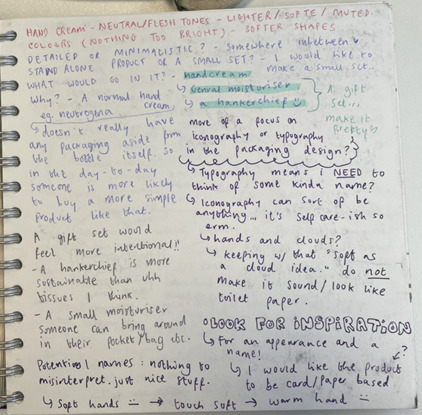 HAND CREAM - NEUTRAL/FLESH TONES - LIGHTER / SOFTE / MUTED
COLOURS (NOTHING TOO BRIGHT) - SOFTER SHAPES
DETAILED OR MINIMALISTIC? - Somewhere inbetween
STAND ALONE PRODUCT OR A SMALL SET? - I would like to
make a small set...
WHAT WOULD GO IN IT? - handcream
↳ moisturiser
↳ a hankerchief :)
A gift
set...
make it
pretty
Why? - A normal hand
eg. neutrogena cream,
↳ doesn't really have
any packaging aside from
the bottle itself. so
in the day-to-day
someone is more likely
to buy a more simple
product like that.
A gift set would
feel more intentional!!
- A hankerchief is more
sustainable than uhh
tissues I think.
- A small moisturiser
someone can bring around
in their pocket/bag etc.
more of a focus on
iconography or typography
in the packaging design?
↳ Typography means I NEED to
think of some kinda name?
↳ Iconography can sort of be
anything... it's self care-ish so
erm.
↳ hands and clouds?
↳ keeping w/ that "soft as
a cloud idea." do not
make it sound/look like
toilet paper.
LOOK FOR INSPIRATION
↳ For an appearance and a
name!
↳ I would like the product
to be card/paper based
Potential names: nothing to
misinterpret. just nice stuff.
↳ Soft hands :) → touch soft → warm hand :)